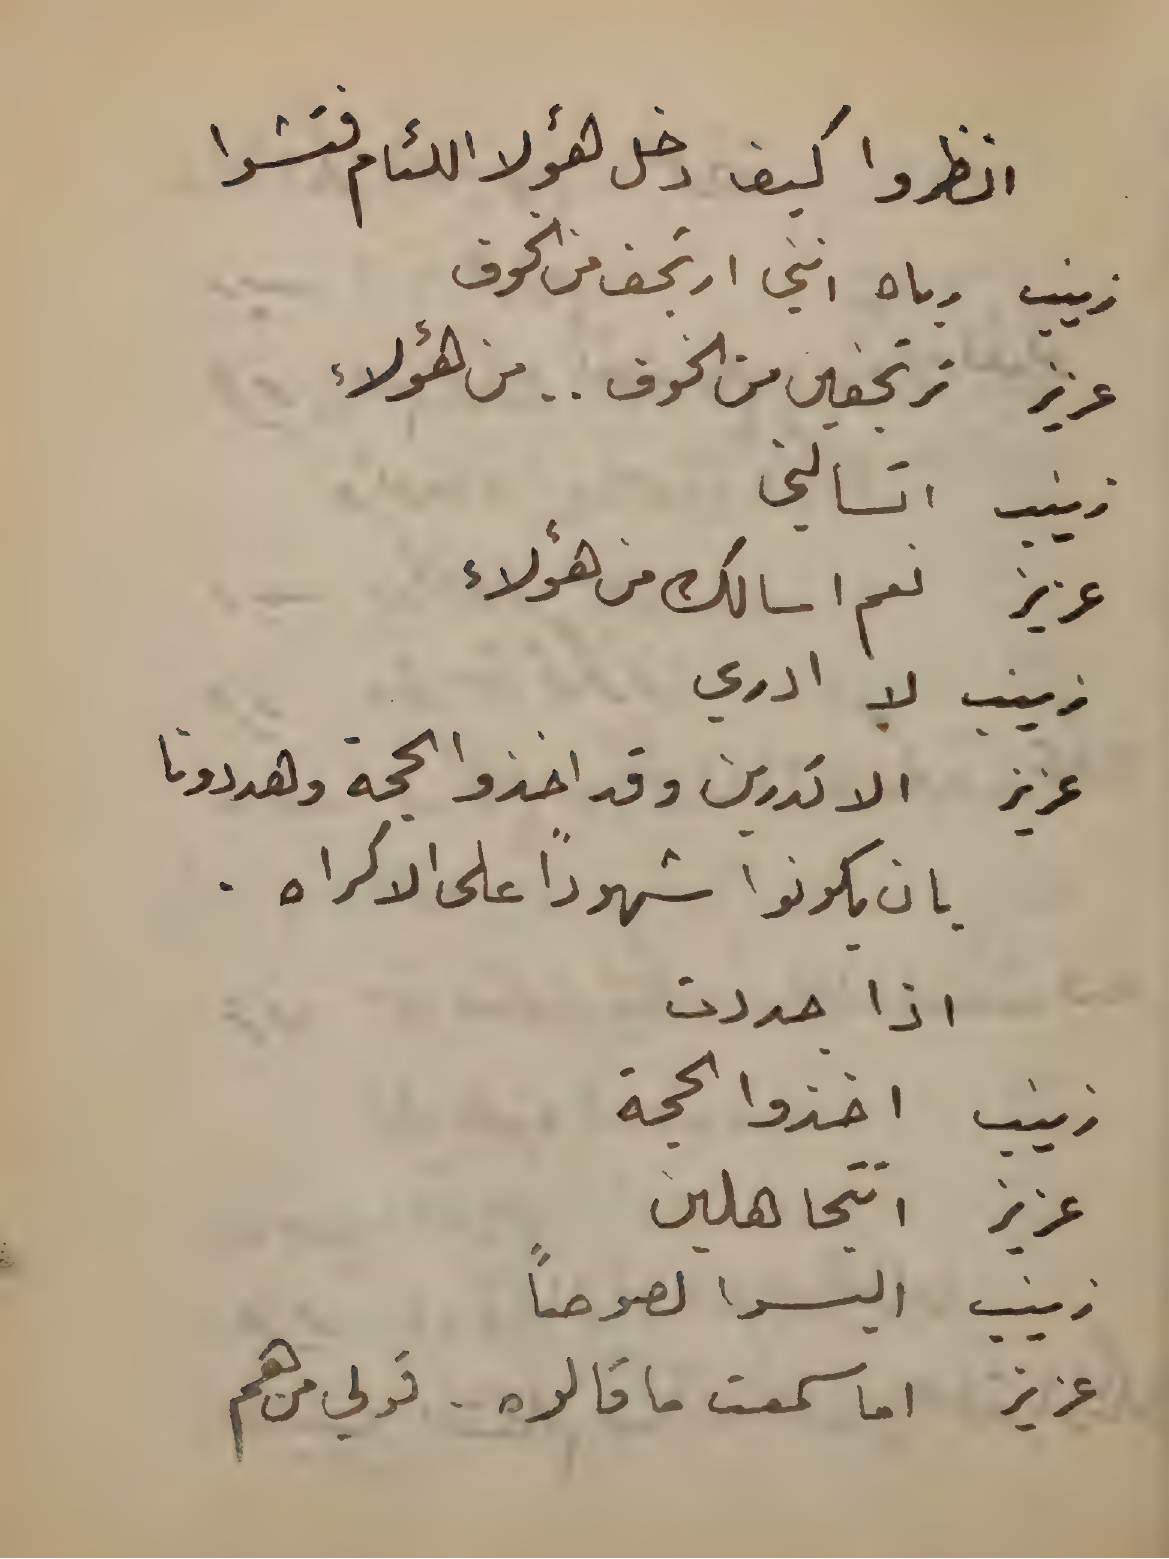 انظروا كيف دخل هؤلا اللئام فتشوا
زينب رباه انني ارتجف من الخوف
عزيز ترتجفين من الخوف .. من هؤلاء
زينب اتسالني
عزيز نعم اسالك من هؤلاء
زينب لا ادري
عزيز الا تدرين وقد اخذوا الحجة وهددونا
بان يكونوا شهوداً على الاكراه .
اذا جددت
زينب اخذوا الحجة
عزيز اتتجاهلين
زينب اليسوا لصوصاً
عزيز اما سمعت ما قالوه .. قولي من هم